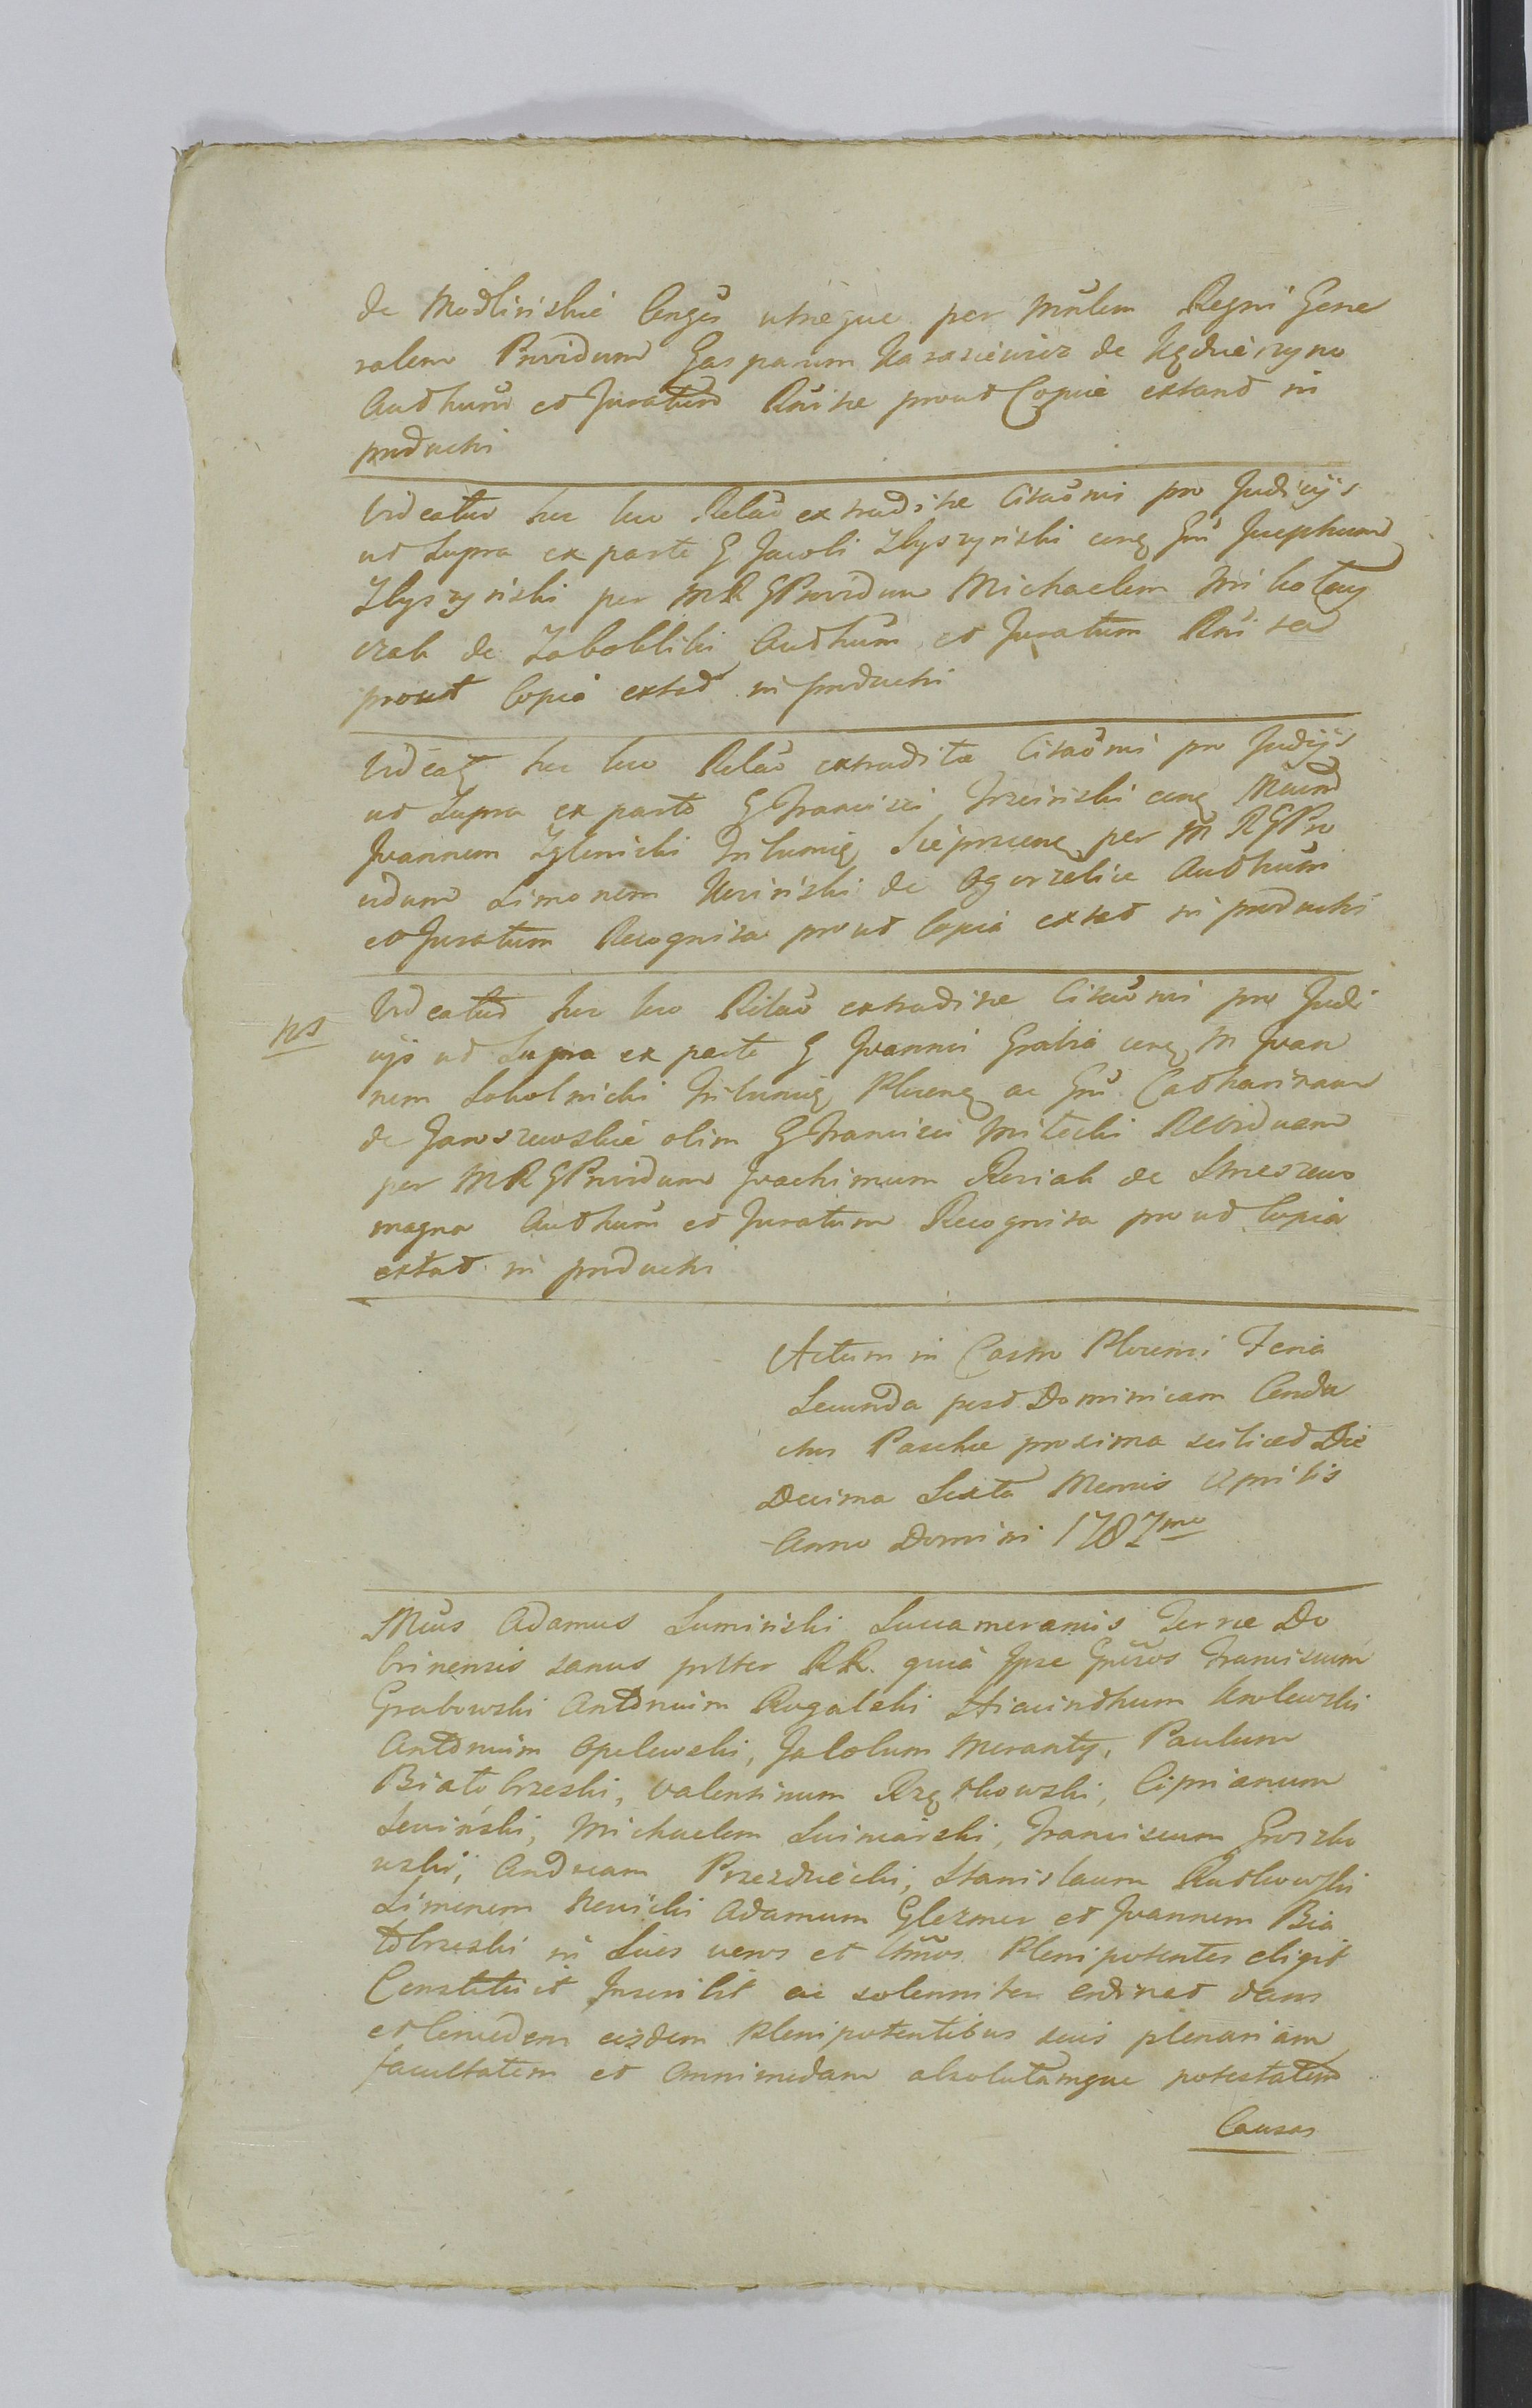 de Modlinskie Conges utrieque per Mnlem Regni Gene
ralem Providum Gasparum Karasiewicz de Kędzierzyno
Authum et Juratum Rnitae prout Copiae extant in
productis
Videatur hic loco Relao extraditae Citaonis pro Judicijs
ut Supra ex parte G Jacobi Zbyszyński cong Gnm Josephum
Zbyszyński per MRGProvidum Michaelem Mikołay
czak de Zakobliki Authum et Juratum Rnita
prout Copia extat in productis
Videatz hic loco Relao extraditae Citaonis pro Judijs
ut Supra ex parte G Francisci Trzciński cong Mcum
Joannem Zglenicki Tribunig Sieprceng per M RGPro
vidum Simonem Kociński de Ogorzelice Authum
et Juratum Recognita prout Copia extat in productis
Ns
Videatur hic loco Relao extraditae Citaonis pro Judi
cijs ut Supra ex parte G Joannis Grabia cong M Joan
nem Sokolnicki Tribunig Ploceng ac Gnm Catharinam
de Jaroszewskie olim G Francisci Mitecki Relviduam
per MRGProvidum Joachimum Rosiak de Smoszewo
magno Authum et Juratum Recognita prout Copia
extat in productis
Actum in Castro Plocensi Feria
Secunda post Dominicam Condu
ctus Paschae proxima scilicet Die
Decima Sexta Mensis Aprilis
Anno Domini 1787mo
Mcus Adamus Sumiński Succamerarius Terrae Do
brinensis sanus prltter RR. quia Ipse Gnrsos Franciscum
Grabowski Antonium Rogalski Hiacinthum Krolewski
Antonium Opolewski, Jakobum Meranty, Paulum
Białobrzeski, Valentinum Rzętkowski, Ciprianum
Lewiński, Michaelem Sieimarski, Franciscum Groszko
wski, Andream Przezdziecki, Stanislaum Rutkowski
Simonem Nowicki Adamum Glezmer et Joannem Bia
łobrzeski in Suos veros et Lttmos Plenipotentes eligit
Constituit Inscribit ac solenniter ordinat dans
et Concedens eisdem Plenipotentibus suis plenariam
facultatem et omnimodam absolutamque potestatem
Causas